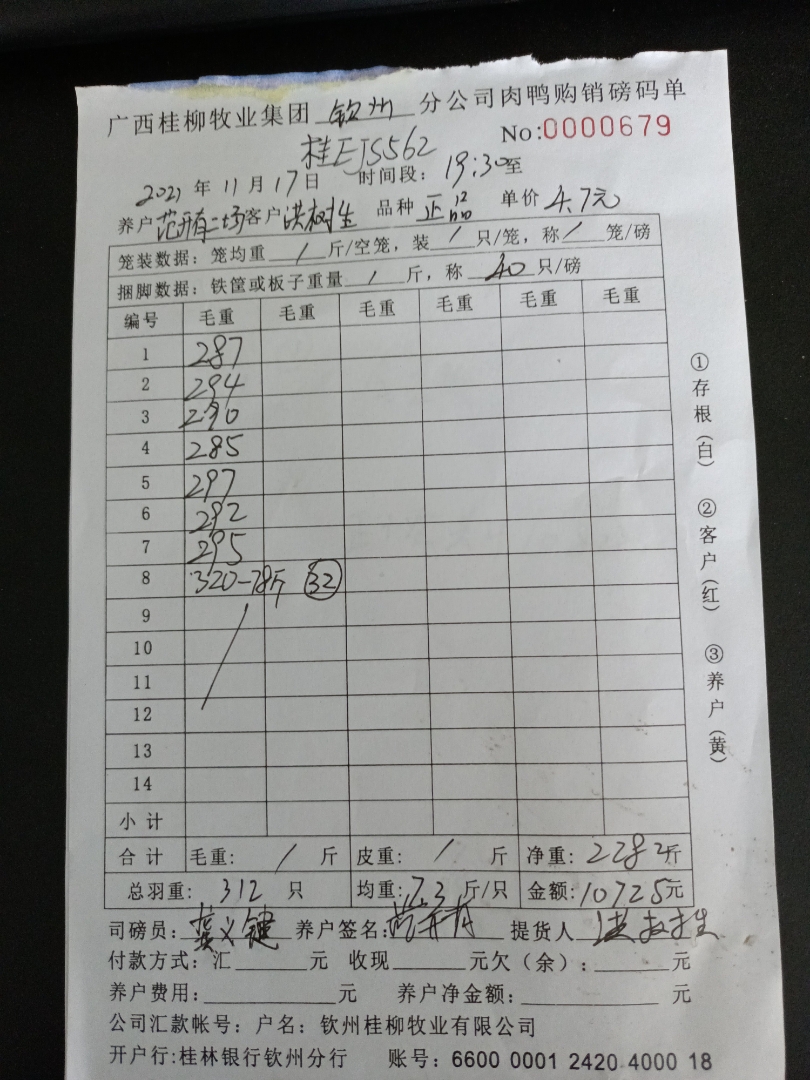 广西桂柳牧业集团 钦州 分公司肉鸭购销磅码单
桂EJS562 No:0000679
2021年11月17日 时间段:19:30至
养户范开有二场客户洪树生 品种正品 单价4.7元
笼装数据:笼均重/斤/空笼,装/只/笼,称/笼/磅
捆脚数据:铁筐或板子重量/斤,称40只/磅
编号 毛重 毛重 毛重 毛重 毛重 毛重
1 287
2 294
3 290
4 285
5 297
6 292
7 295
8 320-78斤 32
9
10
11
12
13
14
小计
合计 毛重:/斤 皮重:/斤 净重:2282斤
总羽重:312只 均重:7.3斤/只 金额:10725元
司磅员:龚义键 养户签名:范开有 提货人洪树生
付款方式:汇____元 收现____元欠(余):____元
养户费用:____元 养户净金额:____元
公司汇款帐号:户名:钦州桂柳牧业有限公司
开户行:桂林银行钦州分行 账号:6600 0001 2420 4000 18
①存根(白) ②客户(红) ③养户(黄)